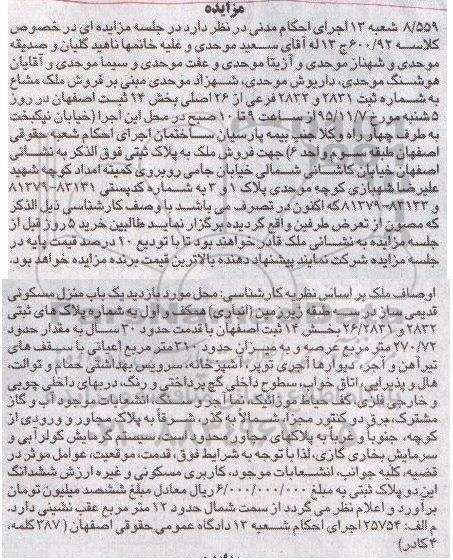 مزایده
۸/۵۵۹ شعبه ۱۳ اجرای احکام مدنی در نظر دارد در جلسه مزایده ای در خصوص
کلاسه ۶۰۰/۹۲ ج ۱۳ له آقای سعید موحدی و علیه خانمها ناهید گلیان و صدیقه
موحدی و شهناز موحدی و آزیتا موحدی و عفت موحدی و سیما موحدی و آقایان
هوشنگ موحدی، داریوش موحدی، شهزاد موحدی مبنی بر فروش ملک مشاع
به شماره ثبت ۲۸۳۱ و ۲۸۳۲ فرعی از ۲۶ اصلی بخش ۱۲ ثبت اصفهان در روز
۵ شنبه مورخ ۹۵/۱۱/۷ از ساعت ۹ تا ۱۰ صبح در محل این اجرا (خیابان نیکبخت
به طرف چهارراه وکلا جنب بیمه پارسیان ساختمان اجرای احکام شعبه حقوقی
اصفهان طبقه سوم واحد ۶) جهت فروش ملک به پلاک ثبتی فوق الذکر به نشانی
اصفهان خیابان کاشانی شمالی خیابان جامی روبروی کمیته امداد کوچه شهید
علیرضا شهبازی کوچه موحدی پلاک ۱ و ۳ به شماره کدپستی ۸۳۱۳۱-۸۱۳۷۹
و ۸۳۱۳۳-۸۱۳۷۹ که اکنون در تصرف می باشد با وصف کارشناسی ذیل الذکر
که مصون از تعرض طرفین واقع گردیده برگزار نماید طالبین خرید ۵ روز قبل از
جلسه مزایده به نشانی ملک قادر خواهند بود تا با تودیع ۱۰ درصد قیمت پایه در
جلسه مزایده شرکت نمایند پیشنهاد دهنده بالاترین قیمت برنده مزایده خواهد بود.
اوصاف ملک بر اساس نظریه کارشناسی: محل مورد بازدید یک باب منزل مسکونی
قدیمی ساز در سه طبقه زیرزمین (انباری) همکف و اول به شماره پلاک های ثبتی
۲۸۳۲ و ۲۶/۲۸۳۱ بخش ۱۲ ثبت اصفهان با قدمت حدود ۳۰ سال به مقدار حدود
۲۷۰/۷۲ متر مربع عرصه و به میزان حدود ۳۱۰ متر مربع اعیانی با سقف های
تیرآهن و آجر، دیوارها آجری توپر، آشپزخانه، سرویس بهداشتی حمام و توالت،
هال و پذیرایی، اتاق خواب، سطوح داخلی گچ پرداختی و رنگ، دربهای داخلی چوبی
و خارجی فلزی، کف حیاط موزائیک، نما آجر و سنگ، انشعابات منصوبه آب و گاز
مشترک، برق دو کنتور مجزا، شمالاً به گذر، شرقاً به پلاک مجاور و ورودی از
کوچه، جنوباً و غرباً به پلاکهای مجاور محدود است، سیستم گرمایش کولر آبی و
سرمایش بخاری گازی، لذا با توجه به شرایط فوق، قدمت، موقعیت، عوامل موثر در
قضیه، کلیه جوانب، انشعابات موجود، کاربری مسکونی و غیره ارزش ششدانگ
این دو پلاک ثبتی به مبلغ ۶/۰۰۰/۰۰۰/۰۰۰ ریال معادل مبلغ ششصد میلیون تومان
برآورد و اعلام نظر می گردد از سمت شمال حدود ۱۲ متر مربع عقب نشینی دارد.
م الف: ۲۵۷۵۴ اجرای احکام شعبه ۱۳ دادگاه عمومی حقوقی اصفهان (۳۸۷ کلمه،
۴ کادر)